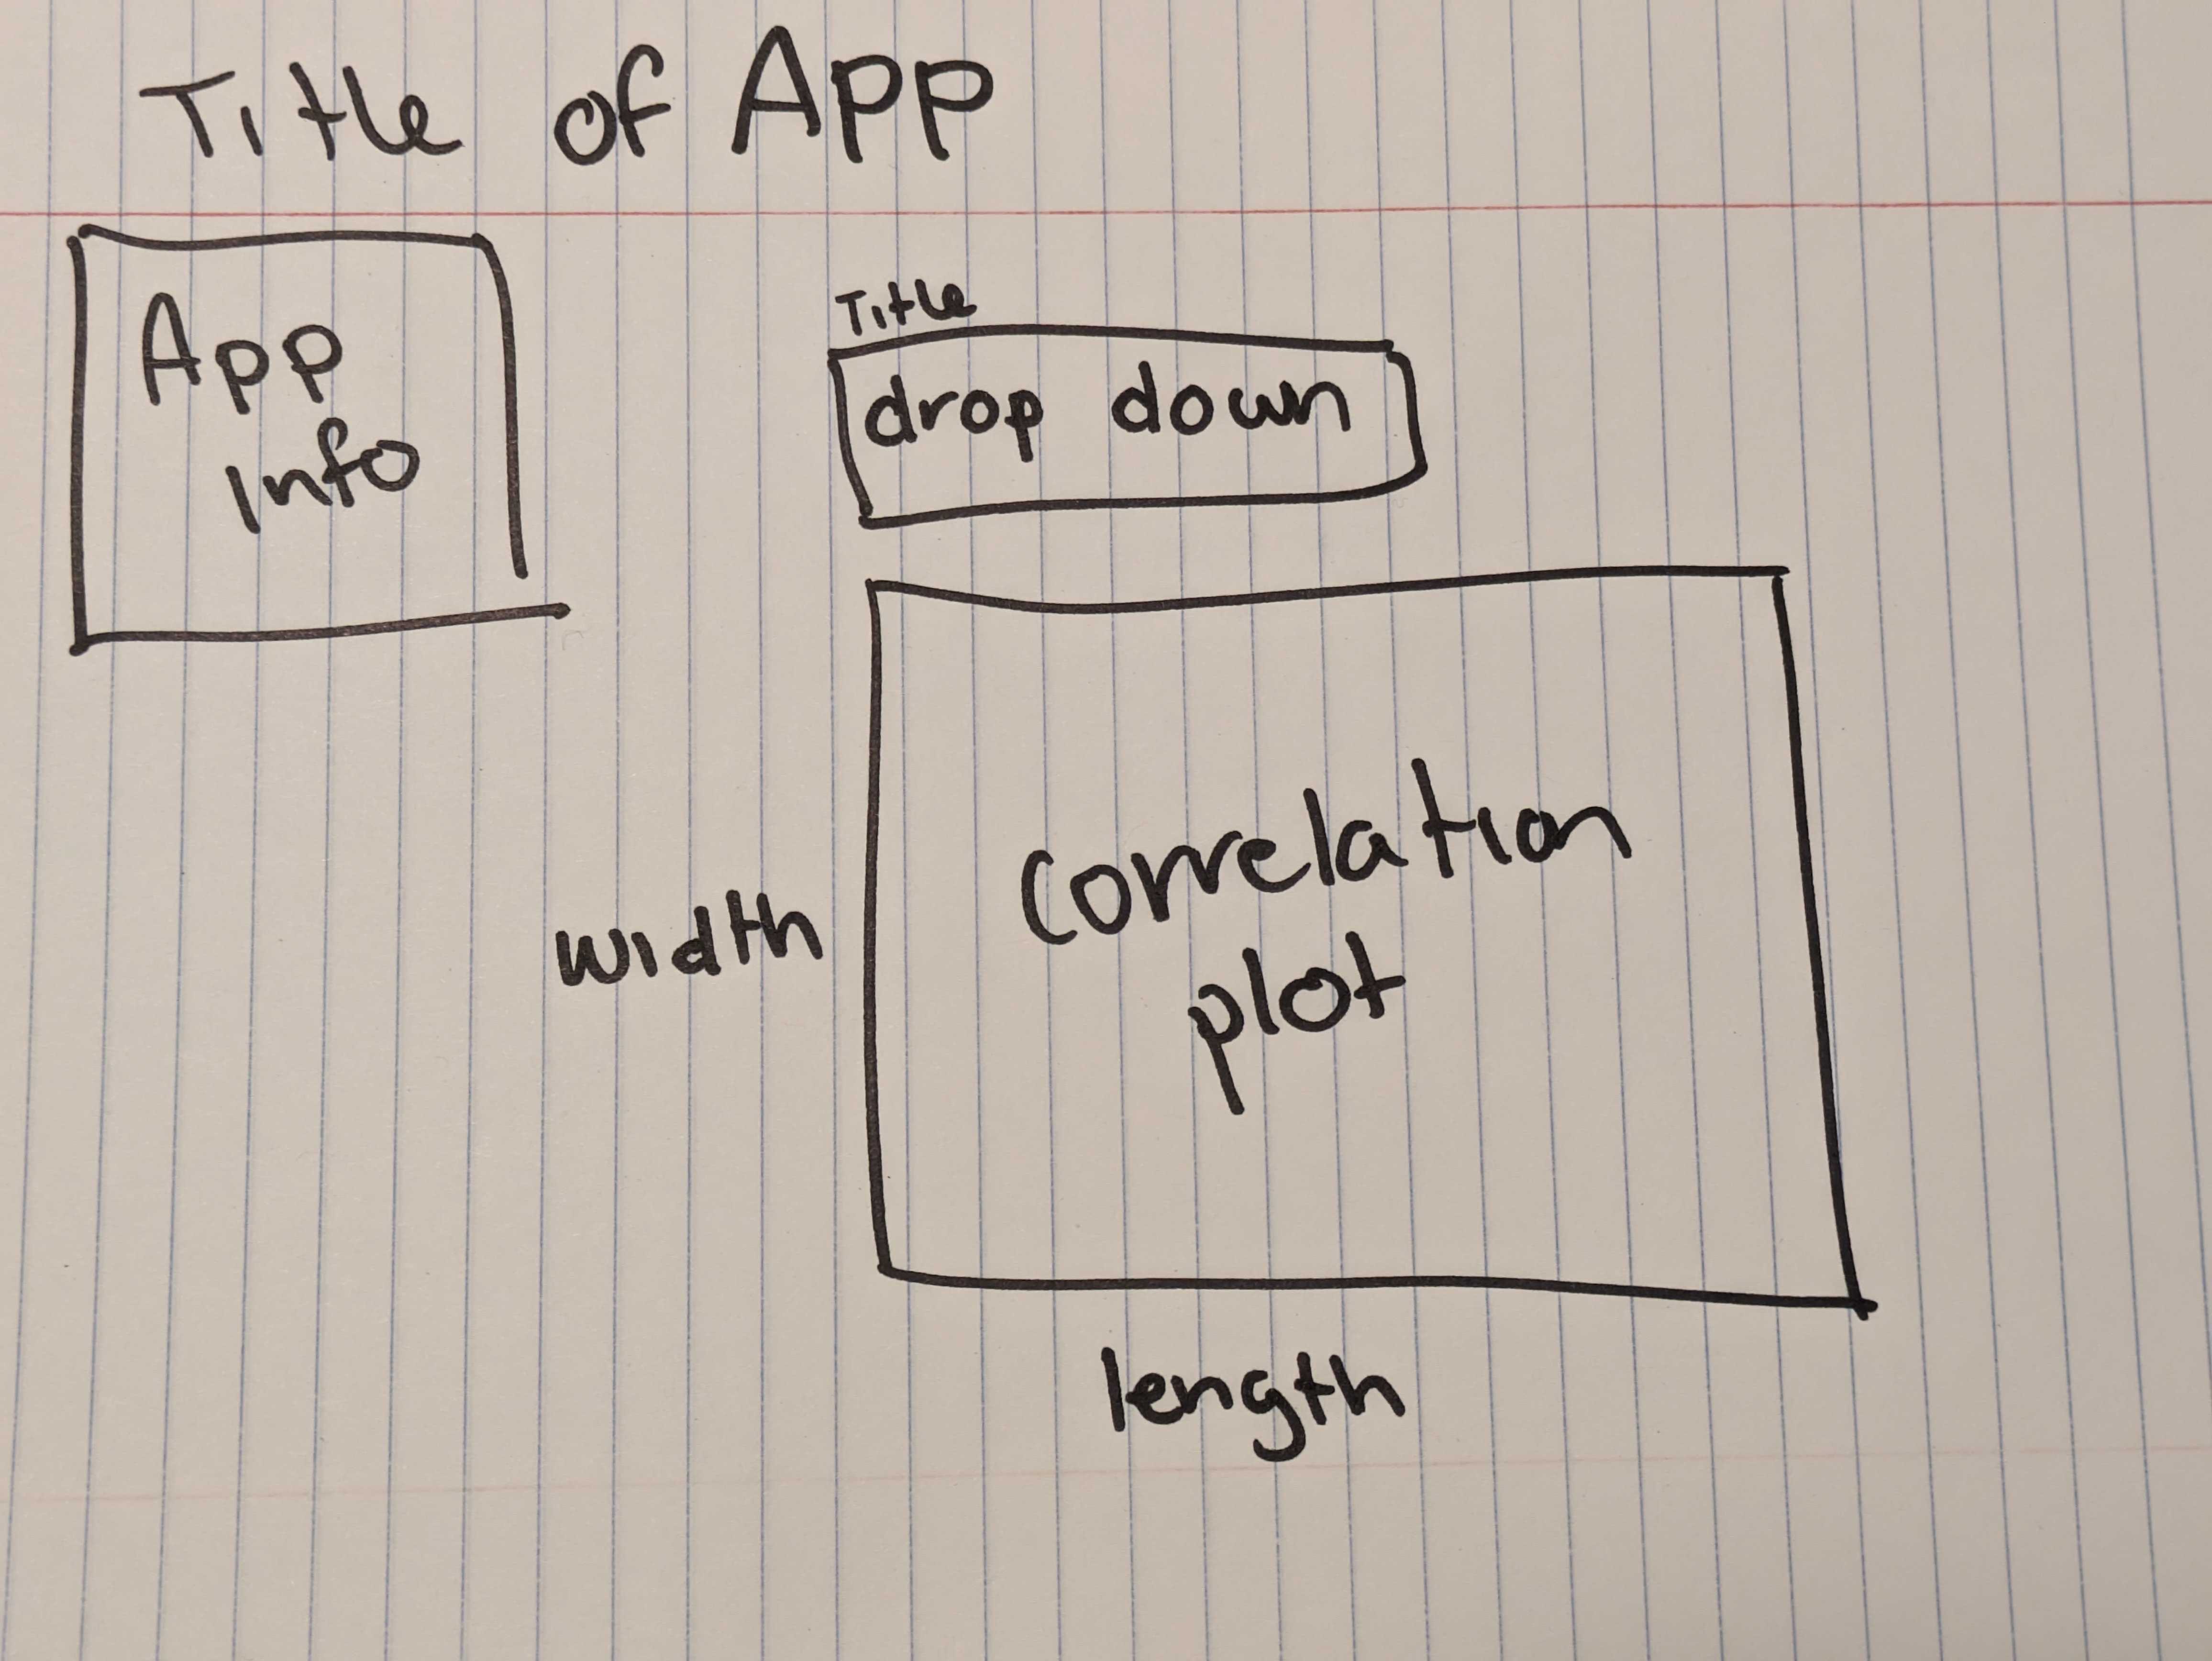 Title of App
App
Info
Title
drop down
Correlation
plot
width
length